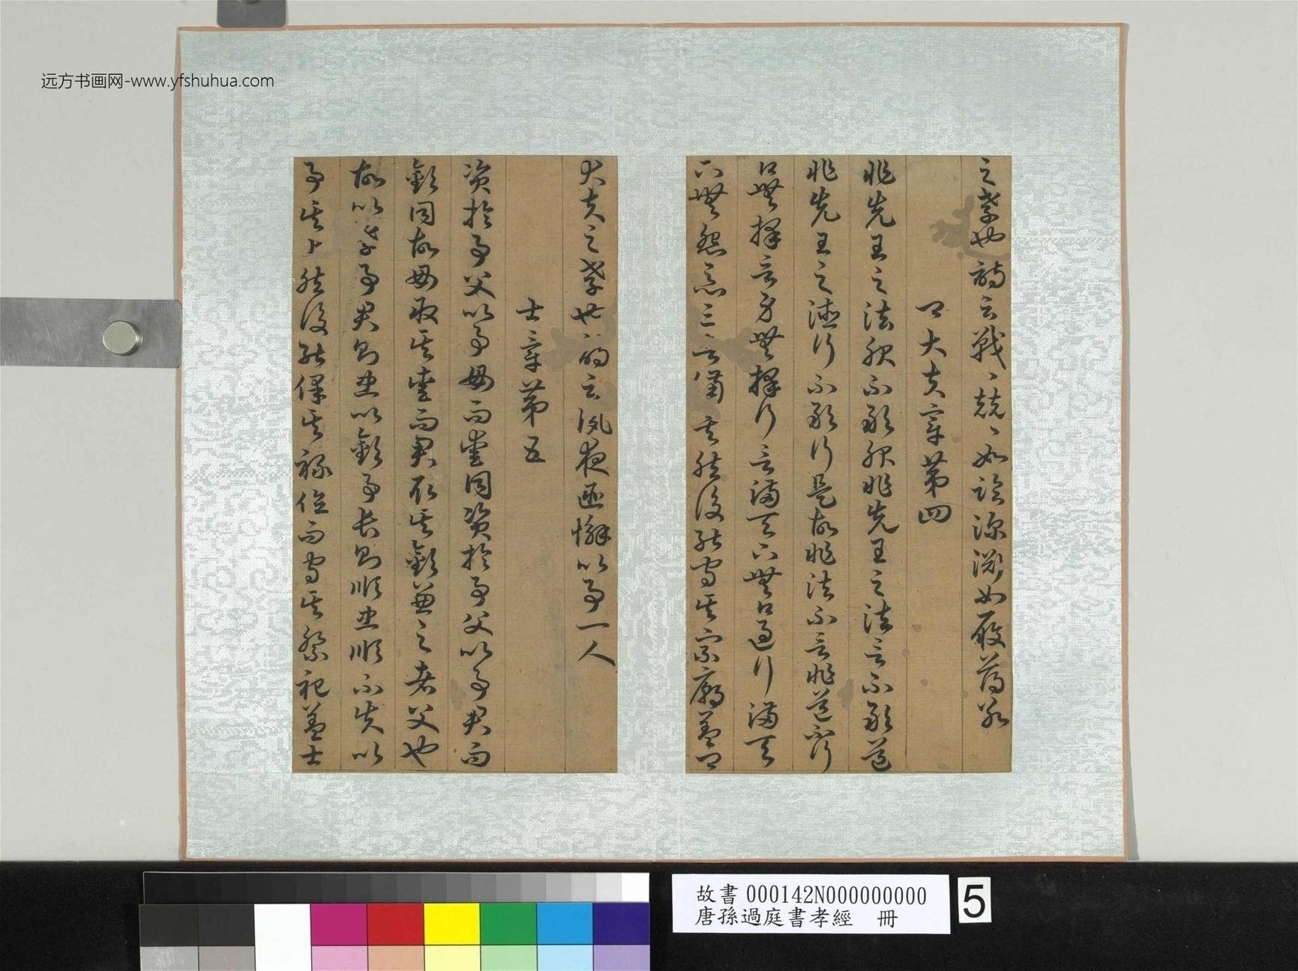 远方书画网-www.yfshuhua.com
之孝也詩云戰〻兢〻如臨深淵如履薄冰
卿大夫章第四
非先王之法服不敢服非先王之法言不敢道
非先王之德行不敢行是故非法不言非道不行
口無擇言身無擇行言滿天下無口過行滿天
下無怨惡三者備矣然後能守其宗廟蓋卿
大夫之孝也詩云夙夜匪懈以事一人
士章第五
資於事父以事母而愛同資於事父以事君而
敬同故母取其愛而君取其敬兼之者父也
故以孝事君則忠以敬事長則順忠順不失以
事其上然後能保其祿位而守其祭祀蓋士
故書 000142N000000000
唐孫過庭書孝經 冊
5